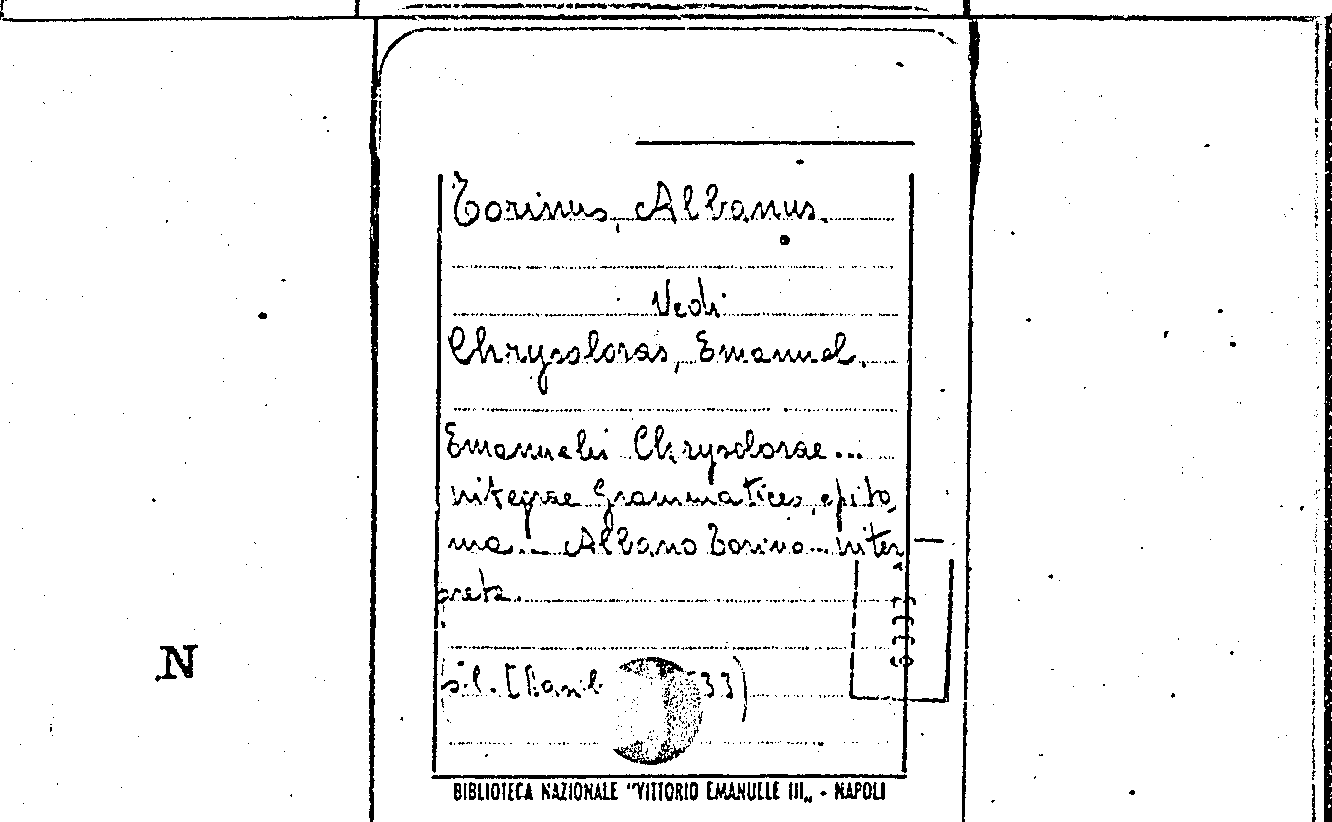 Torinus, Albanus.
Vedi
Chrysoloras, Emanuel.
Emanuelis Chrysolorae...
integrae Grammatices, epito,
ma... Albano Torino... inter,
prete.
N
s.l. [Basil 33)
BIBLIOTECA NAZIONALE "VITTORIO EMANUELE III„ - NAPOLI